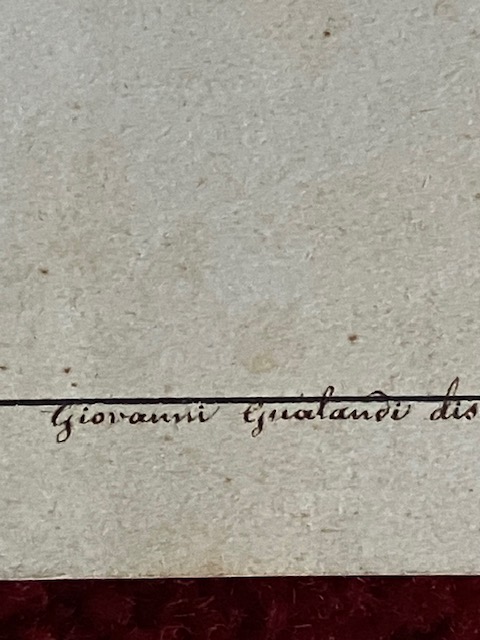 Giovanni Gualandi dis